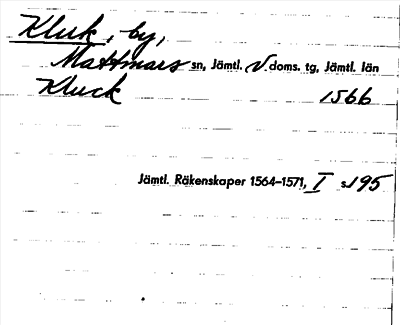 Kluk, by,
Mattmars sn, Jämtl. V doms. tg, Jämtl. län
Kluck 1566
Jämtl. Räkenskaper 1564–1571, I s. 195